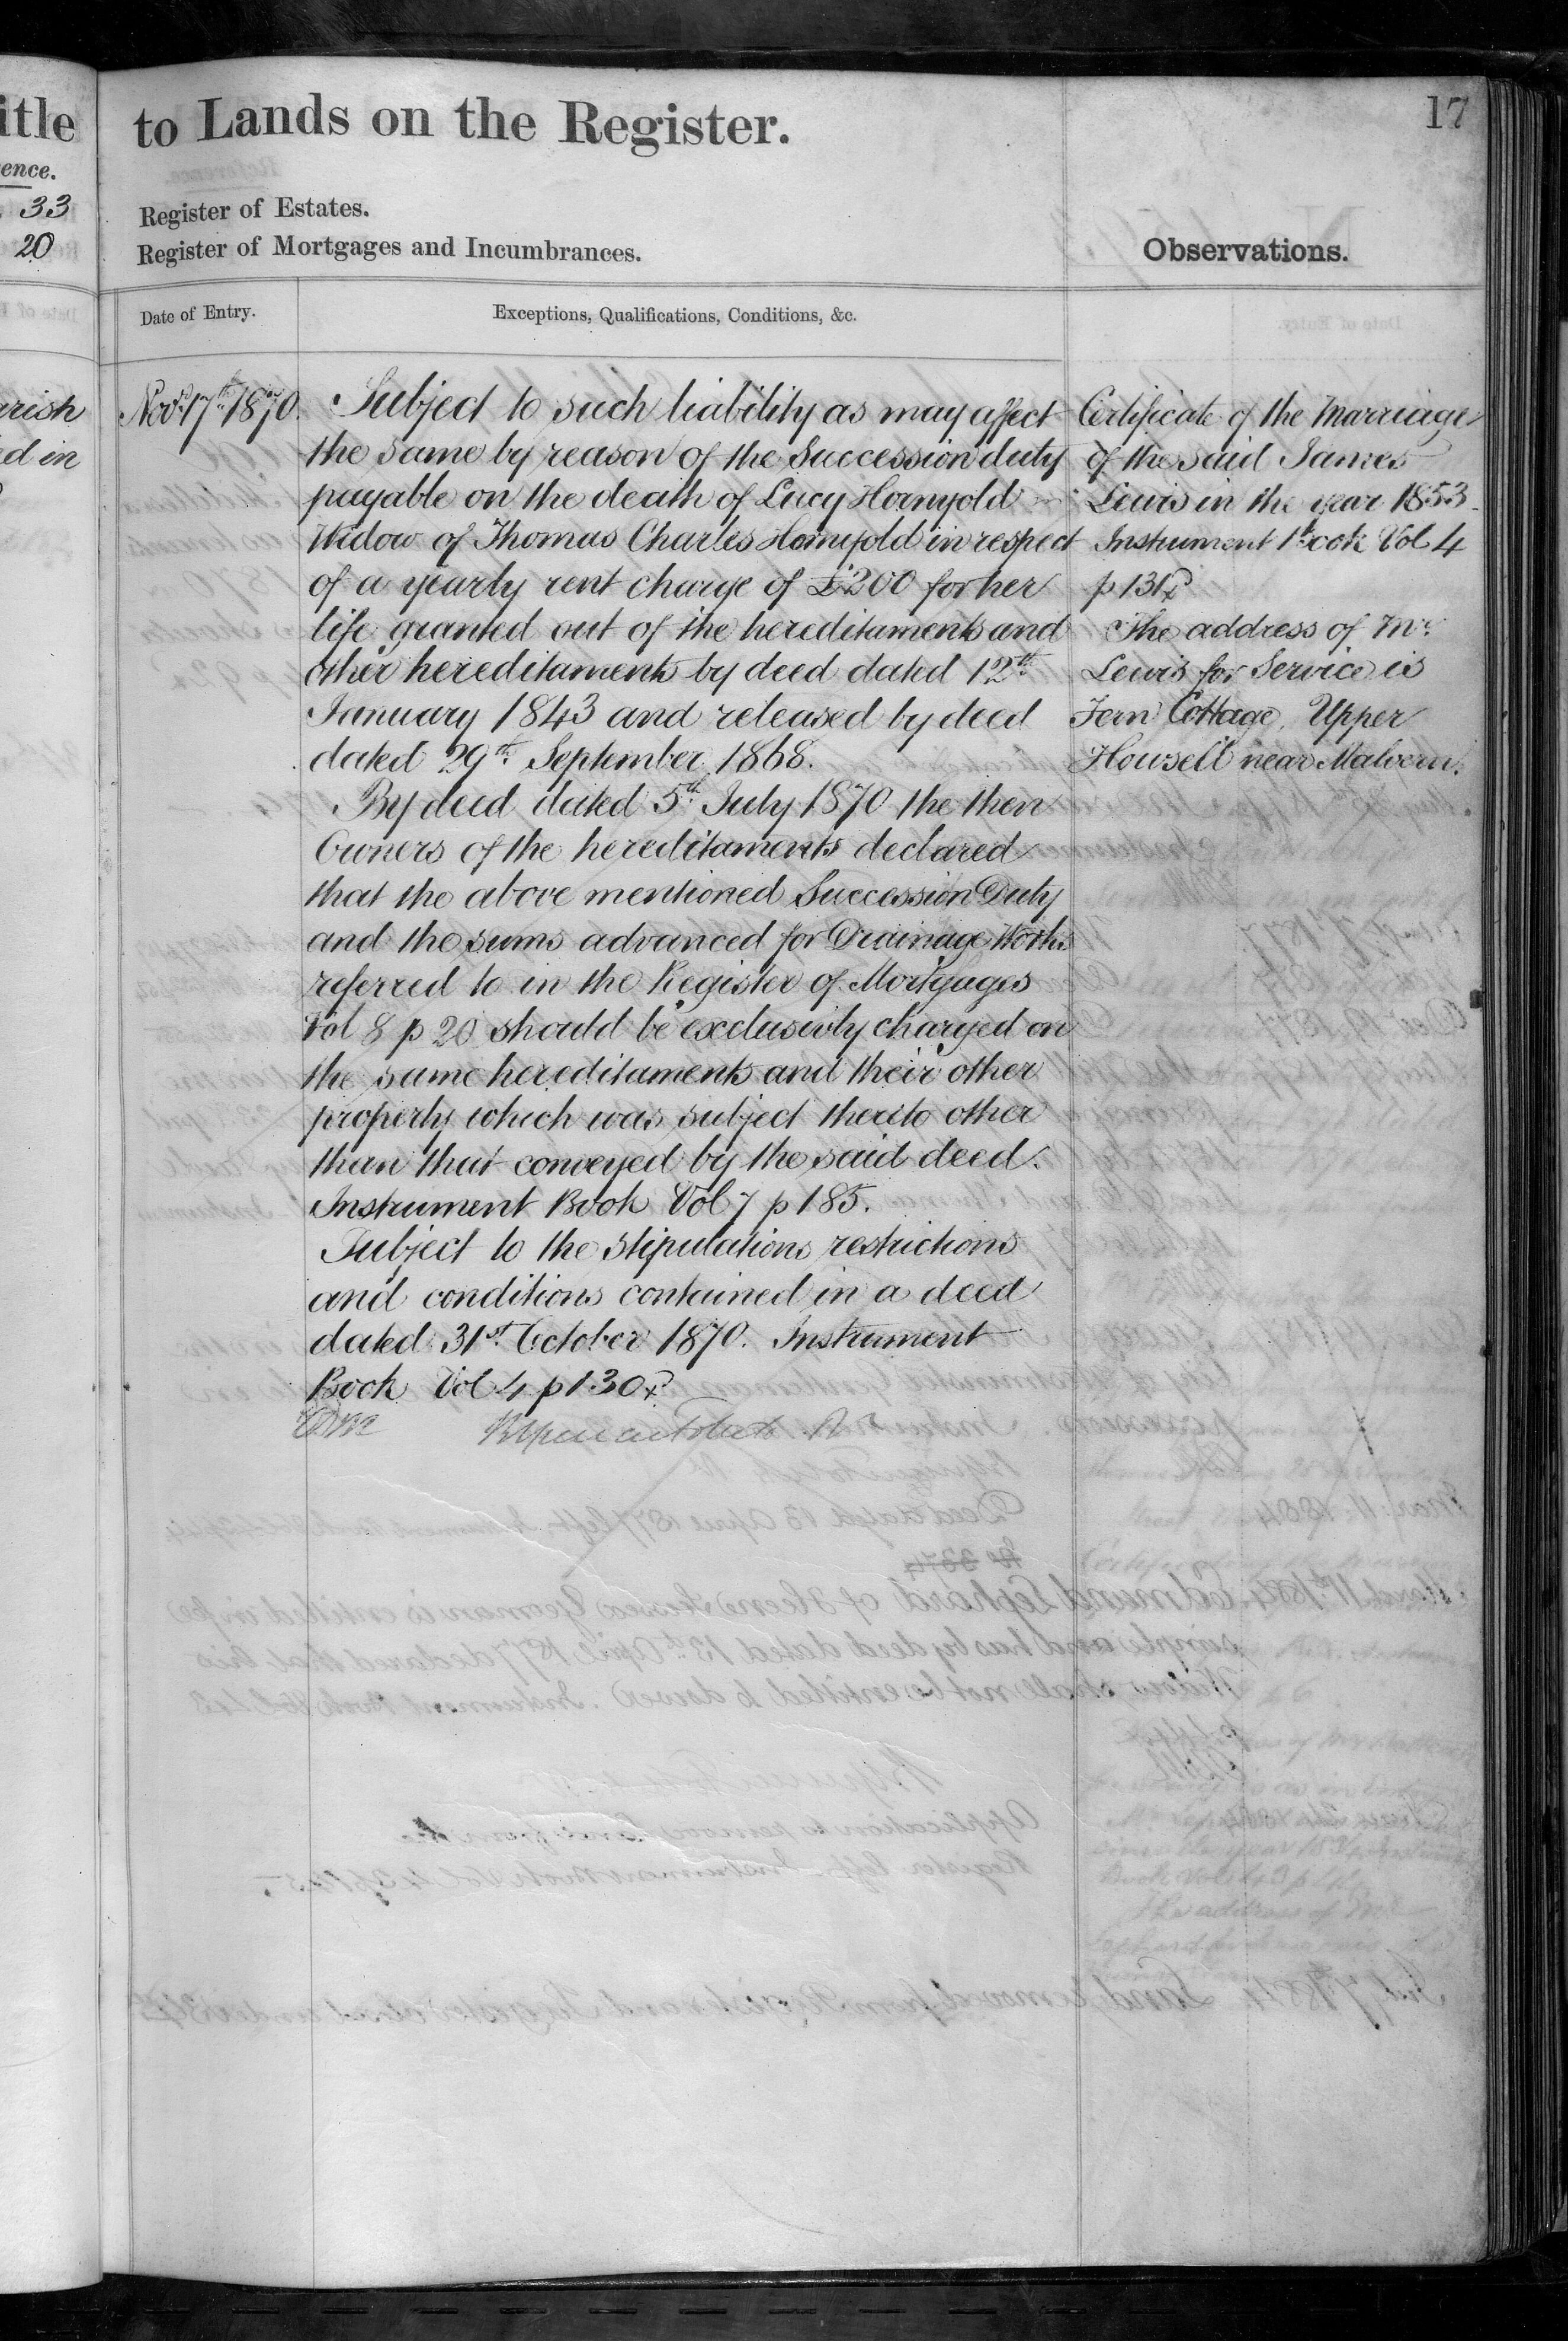 itle
ence.
33
20
arish
ed in
to Lands on the Register.
17
Register of Estates.
Register of Mortgages and Incumbrances.
Observations.
Date of Entry.
Exceptions, Qualifications, Conditions, &c.
Novr. 17th 1870.
Subject to such liability as may affect
the same by reason of the Succession duty
payable on the death of Lucy Hornyold
Widow of Thomas Charles Hornyold in respect
of a yearly rent charge of £200 for her
life granted out of the hereditaments and
other hereditaments by deed dated 12th
January 1843 and released by deed
dated 29th September 1868.
By deed dated 5th July 1870 the then
Owners of the hereditaments declared
that the above mentioned Succession Duty
and the sums advanced for Drainage Works
referred to in the Register of Mortgages
Vol 8 p 20 should be exclusively charged on
the same hereditaments and their other
property which was subject thereto other
than that conveyed by the said deed.
Instrument Book Vol 7 p 185.
Subject to the stipulations restrictions
and conditions contained in a deed
dated 31st October 1870. Instrument
Book Vol 4 p 130
Certificate of the Marriage
of the said James
Lewis in the year 1853.
Instrument Book Vol 4
p 131
The address of Mr.
Lewis for Service is
Fern Cottage, Upper
Howsell near Malvern.